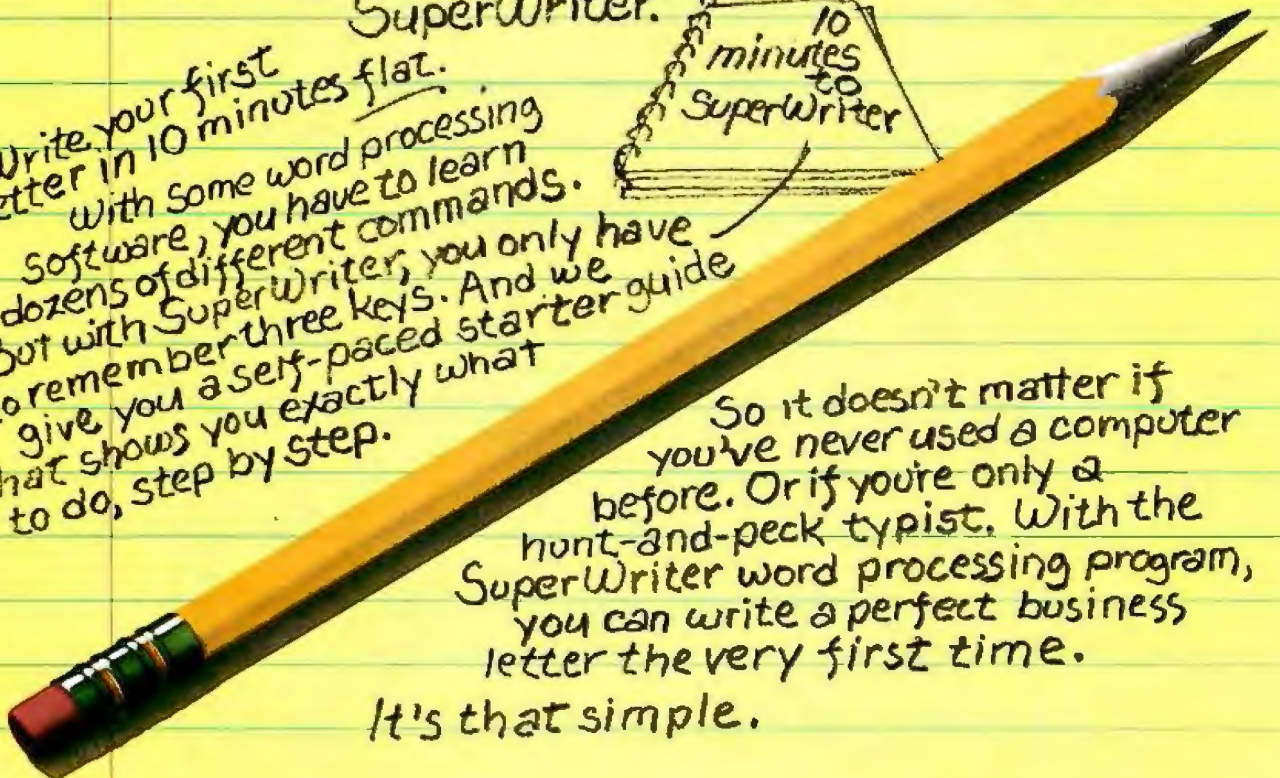 SuperWriter.
10
minutes
to
SuperWriter
Write your first
etter in 10 minutes flat.
With some word processing
software, you have to learn
dozens of different commands.
But with SuperWriter, you only have
o remember three keys. And we
give you a self-paced starter guide
hat shows you exactly what
to do, step by step.
So it doesn't matter if
you've never used a computer
before. Or if you're only a
hunt-and-peck typist. With the
SuperWriter word processing program,
you can write a perfect business
letter the very first time.
It's that simple.